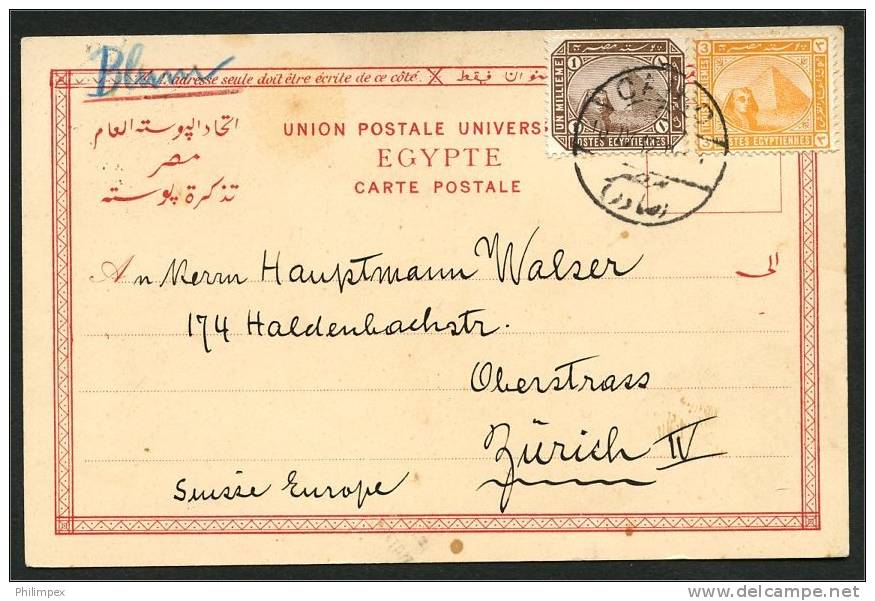 Blum
adresse seule doit être écrite de ce côté.
فيقط
اتحاد الپوسته العام
مصر
تذكرة پوسته
UNION POSTALE UNIVERS
EGYPTE
CARTE POSTALE
پوسته مصريه
1
UN MILLIEME
POSTES EGYPTIENNES
3
POSTES EGYPTIENNES
(صادر)
الى
An Herrn Hauptmann Walser
174 Haldenbachstr.
Oberstrass
Zürich IV
Suisse Europe
Philimpex
delcampe.net